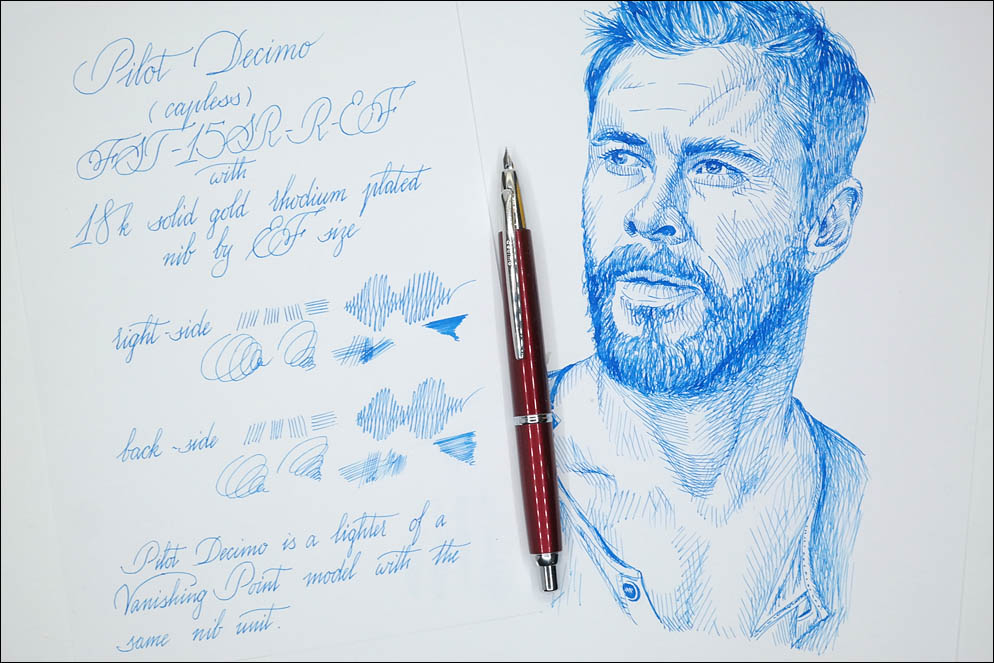 Pilot Decimo
(capless)
FST-15SR-R-EF
with
18k solid gold rhodium plated
nib by EF size
right-side
back-side
Pilot Decimo is a lighter of a
Vanishing Point model with the
same nib unit.